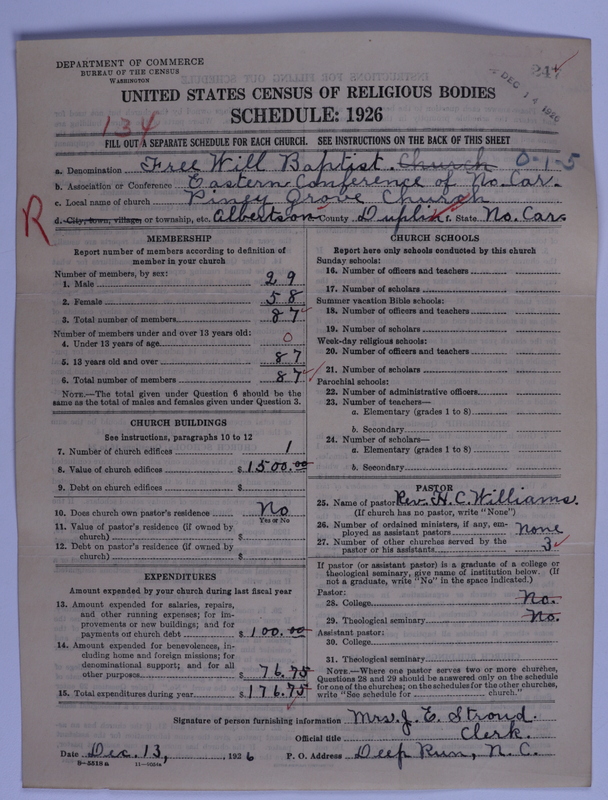 DEPARTMENT OF COMMERCE
BUREAU OF THE CENSUS
WASHINGTON
24
DEC 14 1926
UNITED STATES CENSUS OF RELIGIOUS BODIES
SCHEDULE: 1926
134
FILL OUT A SEPARATE SCHEDULE FOR EACH CHURCH. SEE INSTRUCTIONS ON THE BACK OF THIS SHEET
a. Denomination Free Will Baptist Church 0-1-5
b. Association or Conference Eastern Conference of No. Car.
c. Local name of church Piney Grove Church
R
d. City, town, village, or township, etc. Albertson County Duplin. State No. Car.
MEMBERSHIP
Report number of members according to definition of member in your church
Number of members, by sex:
1. Male 29
2. Female 58
3. Total number of members 87
Number of members under and over 13 years old:
4. Under 13 years of age 0
5. 13 years old and over 87
6. Total number of members 87
NOTE.—The total given under Question 6 should be same as the total of males and females given under Question 3.
CHURCH BUILDINGS
See instructions, paragraphs 10 to 12
7. Number of church edifices 1
8. Value of church edifices $1500.00
9. Debt on church edifices $
10. Does church own pastor's residence No
Yes or No
11. Value of pastor's residence (if owned by church) $
12. Debt on pastor's residence (if owned by church) $
EXPENDITURES
Amount expended by your church during last fiscal year
13. Amount expended for salaries, repairs, and other running expenses; for improvements or new buildings; and for payments on church debt $100.00
14. Amount expended for benevolences, including home and foreign missions; for denominational support; and for all other purposes $76.75
15. Total expenditures during year $176.75
CHURCH SCHOOLS
Report here only schools conducted by this church
Sunday schools:
16. Number of officers and teachers
17. Number of scholars
Summer vacation Bible schools:
18. Number of officers and teachers
19. Number of scholars
Week-day religious schools:
20. Number of officers and teachers
21. Number of scholars
Parochial schools:
22. Number of administrative officers
23. Number of teachers—
a. Elementary (grades 1 to 8)
b. Secondary
24. Number of scholars—
a. Elementary (grades 1 to 8)
b. Secondary
PASTOR
25. Name of pastor Rev. H. C. Williams.
(If church has no pastor, write "None")
26. Number of ordained ministers, if any, employed as assistant pastors None
27. Number of other churches served by the pastor or his assistants 3
If pastor (or assistant pastor) is a graduate of a college or theological seminary, give name of institution below. (If not a graduate, write "No" in the space indicated.)
Pastor:
28. College No.
29. Theological seminary No.
Assistant pastor:
30. College
31. Theological seminary
NOTE.—Where one pastor serves two or more churches, Questions 28 and 29 should be answered only on the schedule for one of the churches; on the schedules for the other churches, write "See schedule for church."
Signature of person furnishing information Mrs. J. E. Stroud.
Official title Clerk.
Date Dec. 13, 1926 P. O. Address Deep Run, N. C.
8-5518a 11-1034a